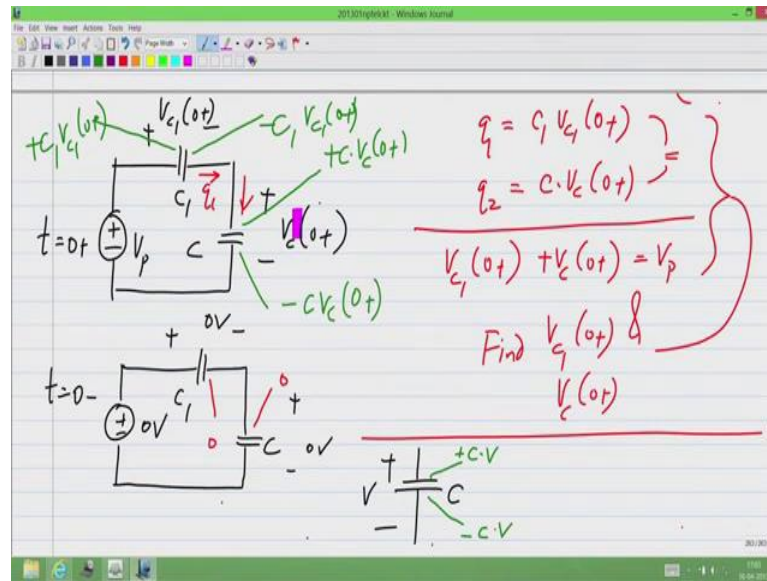 201301nptelckt - Windows Journal
File Edit View Insert Actions Tools Help
Page Width
B I
V_{C_1}(0+)
+ -
+C_1 V_{C_1}(0+)
-C_1 V_{C_1}(0+)
+C·V_C(0+)
C_1 q_1 +
t=0+ + - V_p C V_C(0+)
-
-C V_C(0+)
+ 0V -
t=0- C_1 0 0 +
+ - 0V C 0V
-
q_1 = C_1 V_{C_1}(0+)
=
q_2 = C·V_C(0+)
V_{C_1}(0+) + V_C(0+) = V_p
Find V_{C_1}(0+) &
V_C(0+)
+ +C·V
V C
- -C·V